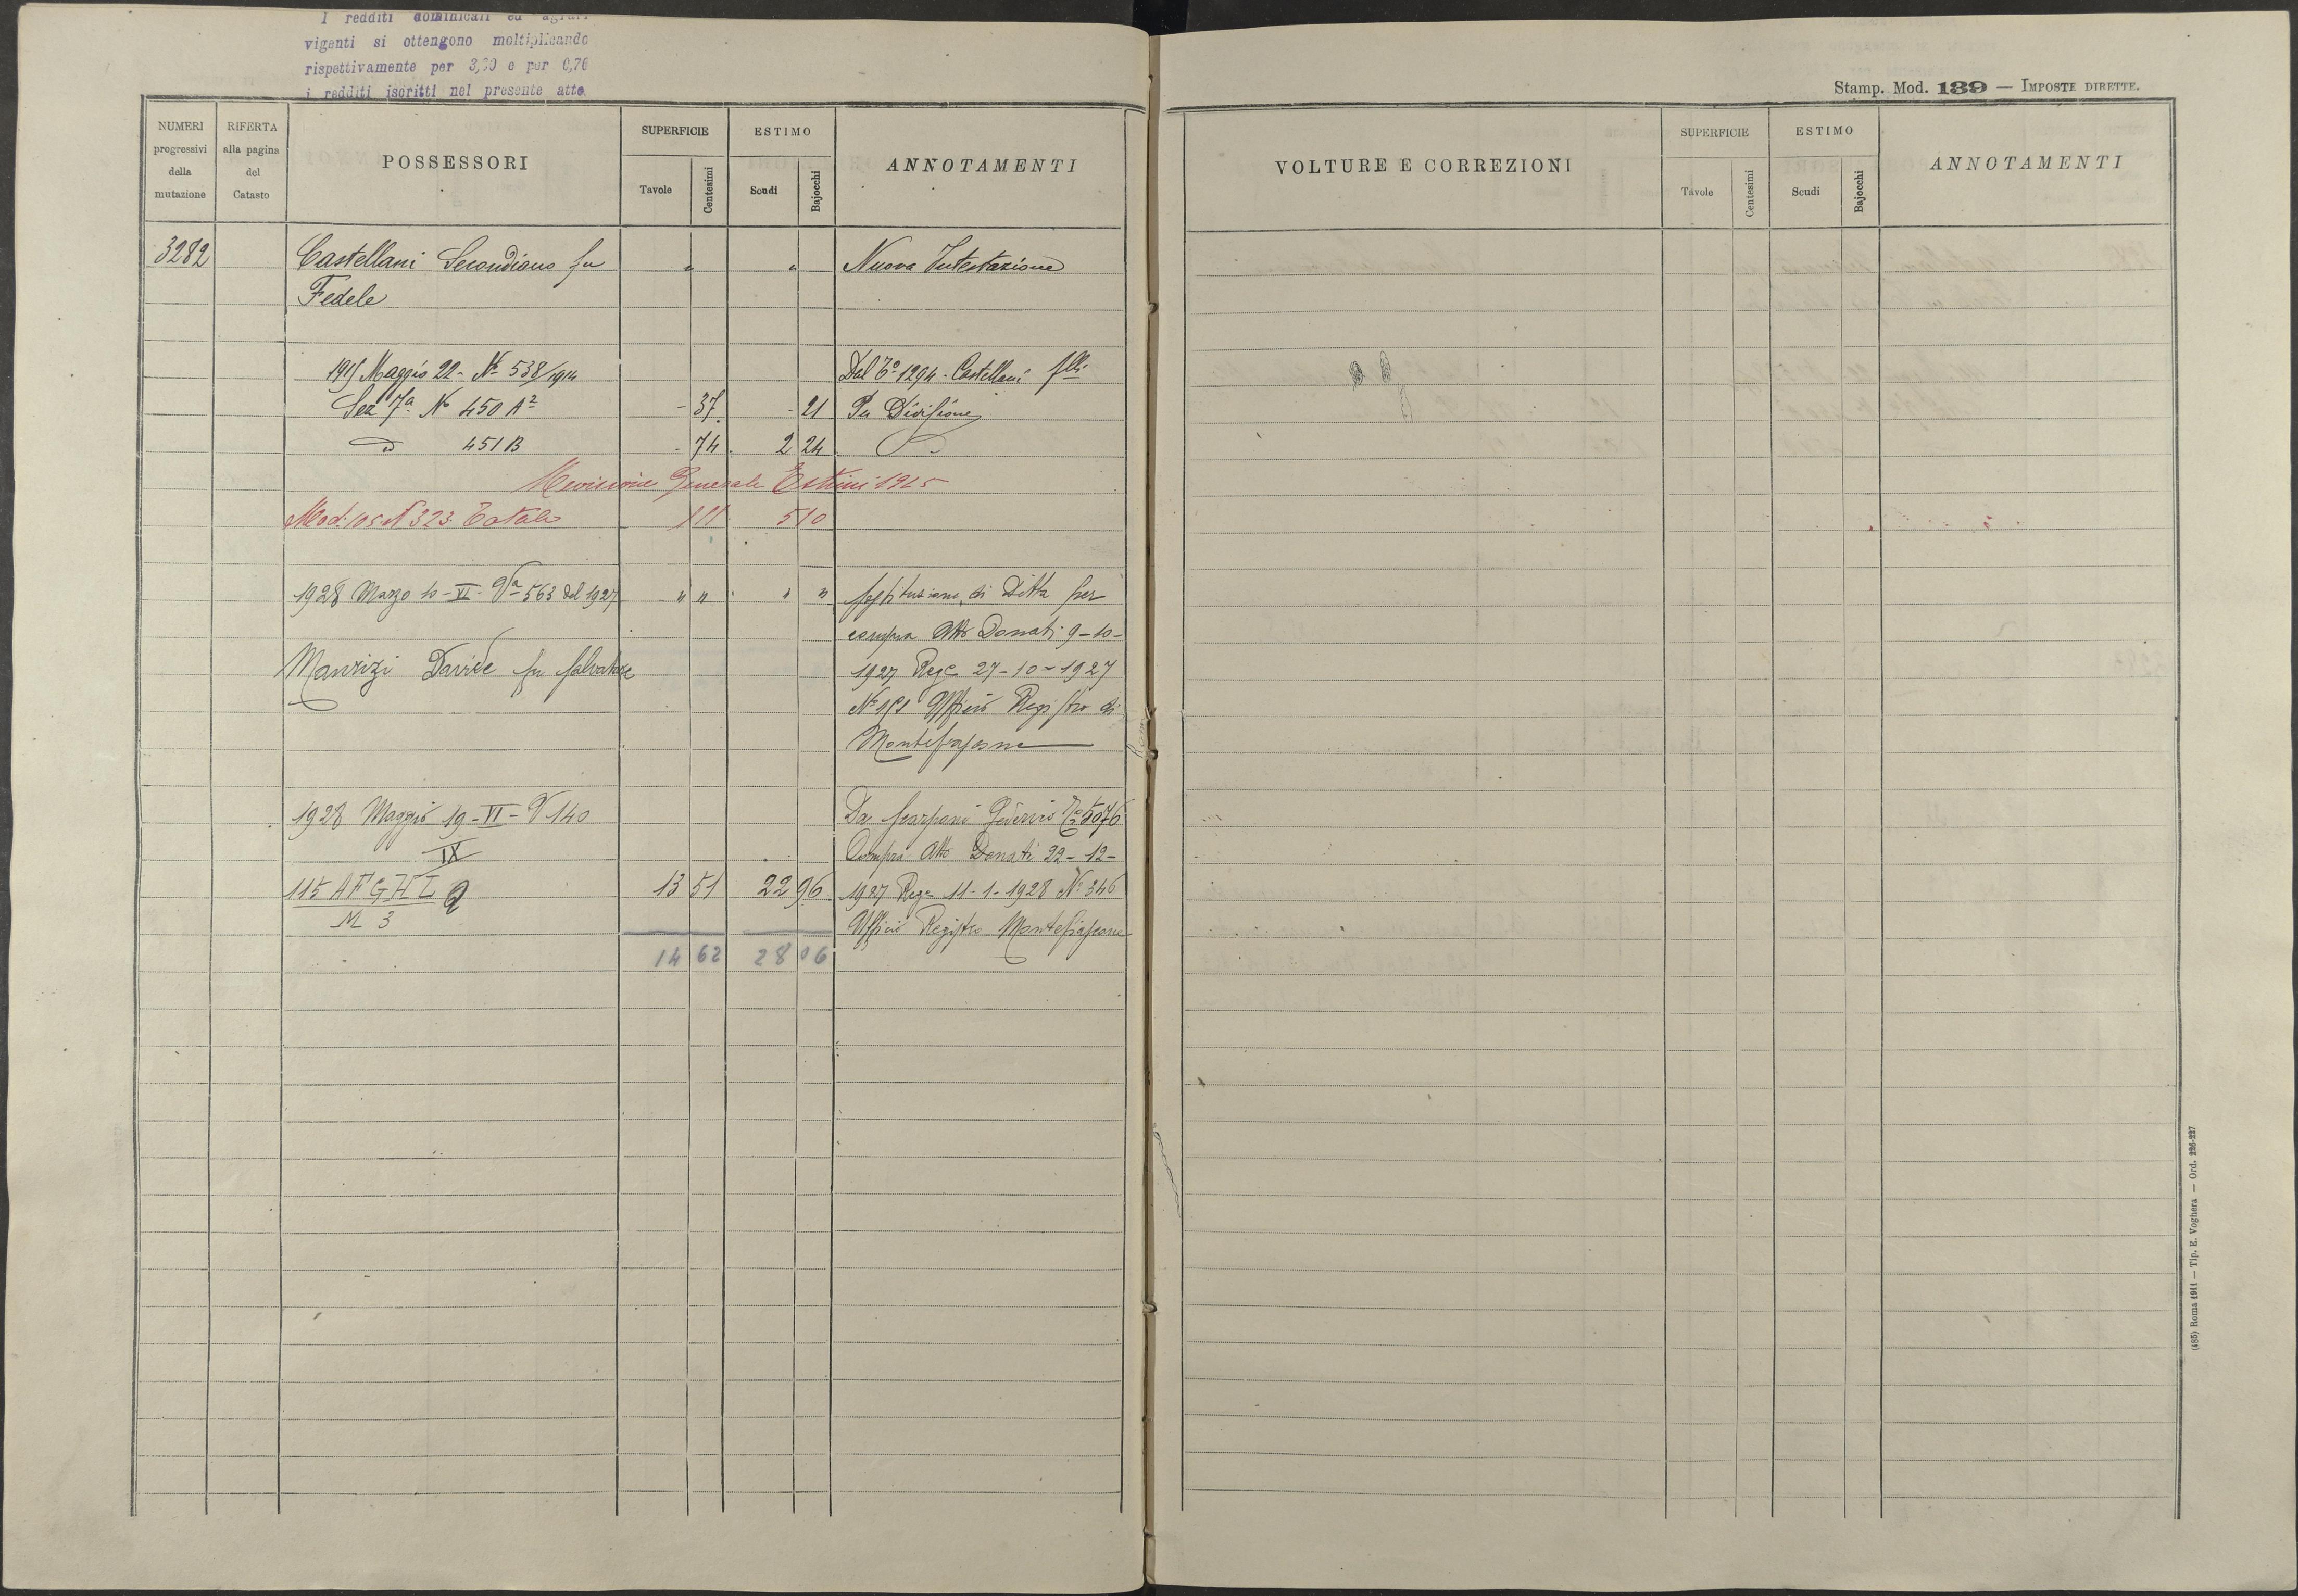 I redditi dominicali ed agrari
vigenti si ottengono moltiplicando
rispettivamente per 3,30 e per 0,76
i redditi iscritti nel presente atto
Stamp. Mod. 139 — IMPOSTE DIRETTE.
NUMERI progressivi della mutazione
RIFERTA alla pagina del Catasto
POSSESSORI
SUPERFICIE
Tavole
Centesimi
ESTIMO
Scudi
Bajocchi
ANNOTAMENTI
3282
Castellani Secondiano fu " " Nuova Intestazione
Fedele
1915 Maggio 22 - N° 538/1914 Dal T° 1294 - Castellani flli
Sez 7a N° 450 A2 - 37 - 21 Per Divisione
D 451 B - 74 2 24 D
Revisione Generale Estimi 1925
Mod. 105 N 323 Totale 1 11 5 10
1928 Marzo 10 - VI - Va 563 del 1927 " " " " Sostituzione di Ditta per
compra Atto Donati 9-10-
Maurizi Davide fu Salvatore 1927 Rege 27-10-1927
Ufficio Registro di
Montefiascone
1928 Maggio 19 - VI - V 140 Da Scarponi T° 5076
IX Compra Atto Donati 22-12-
115 A F G H L Q 13 51 22 96 1927 Rege 11-1-1928 N° 346
M 3 Ufficio Registro Montefiascone
14 62 28 06
VOLTURE E CORREZIONI
SUPERFICIE
Tavole
Centesimi
ESTIMO
Scudi
Bajocchi
ANNOTAMENTI
(485) Roma 1911 — Tip. E. Voghera — Ord. 226-227